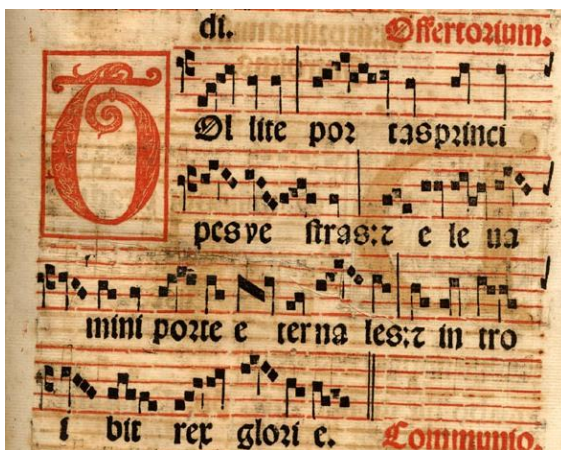 di. Offertorium.
TOl lite por tasprinci
pesve stras:⁊ e le ua
mini porte e terna les:⁊ in tro
i bit rex glori e. Communio.